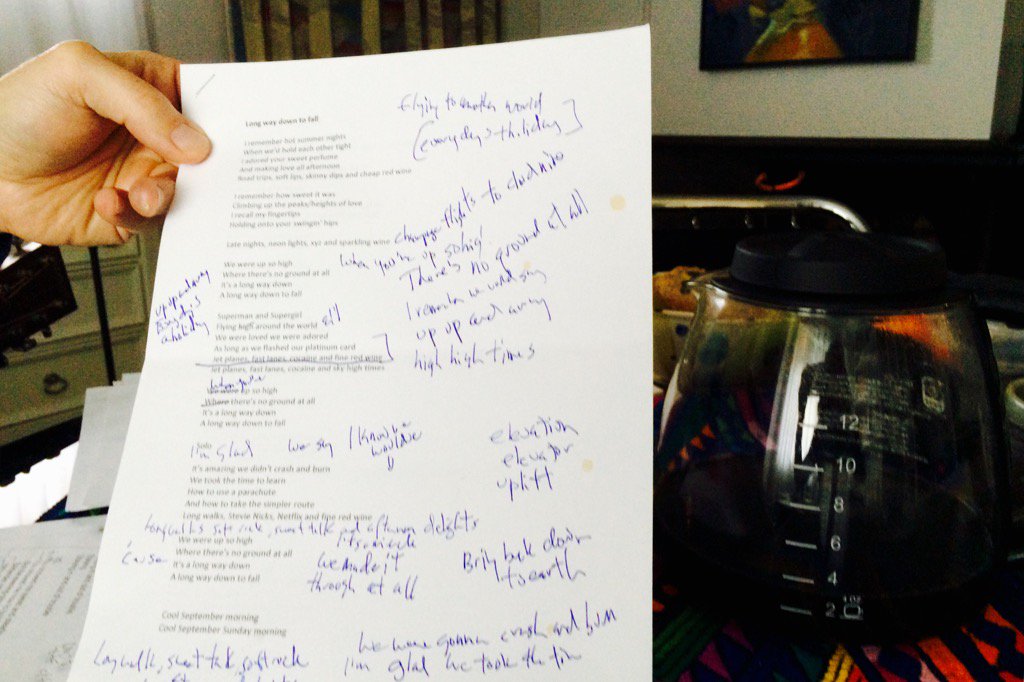 Long way down to fall
Flying to another world
[everyday's a holiday]
I remember hot summer nights
When we'd hold each other tight
I adored your sweet perfume
And making love all afternoon
Road trips, soft lips, skinny dips and cheap red wine
I remember how sweet it was
Climbing up the peaks/heights of love
I recall my fingertips
Holding onto your swingin' hips
Late nights, neon lights, xyz and sparkling wine
champagne flights to cloud nine
We were up so high
Where there's no ground at all
It's a long way down
A long way down to fall
When you're up so high
There's no ground at all
up up and away
a holiday
Superman and Supergirl
Flying high around the world
We were loved we were adored
As long as we flashed our platinum card
Jet planes, fast lanes, cocaine and fine red wine
Jet planes, fast lanes, cocaine and sky high times
I remember we would say
up up and away
high high times
When you're
We were up so high
Where there's no ground at all
It's a long way down
A long way down to fall
Solo
I'm glad
we say
I know
elevation
elevator
uplift
It's amazing we didn't crash and burn
We took the time to learn
How to use a parachute
And how to take the simpler route
Long walks, Stevie Nicks, Netflix and fine red wine
Long walks soft rock, sweet talk and afternoon delights
We were up so high
Where there's no ground at all
It's a long way down
A long way down to fall
'cause
It's a miracle
we made it
through at all
Bring back down
to earth
Cool September morning
Cool September Sunday morning
Long walk, sweet talk, soft rock
We were gonna crash and burn
I'm glad we took the time
12
10
8
6
4
2